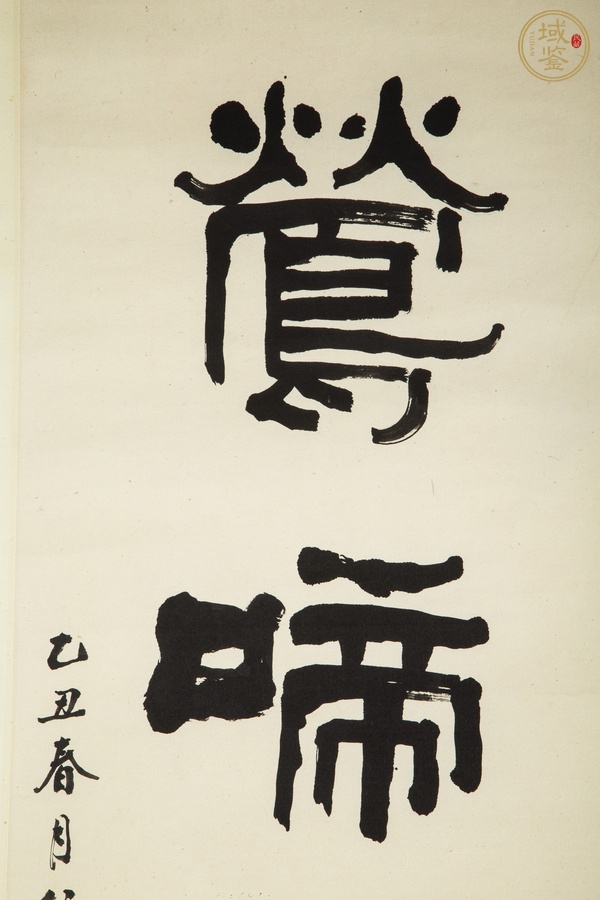 鶯
啼
乙丑春月
域鉴
YUJIAN